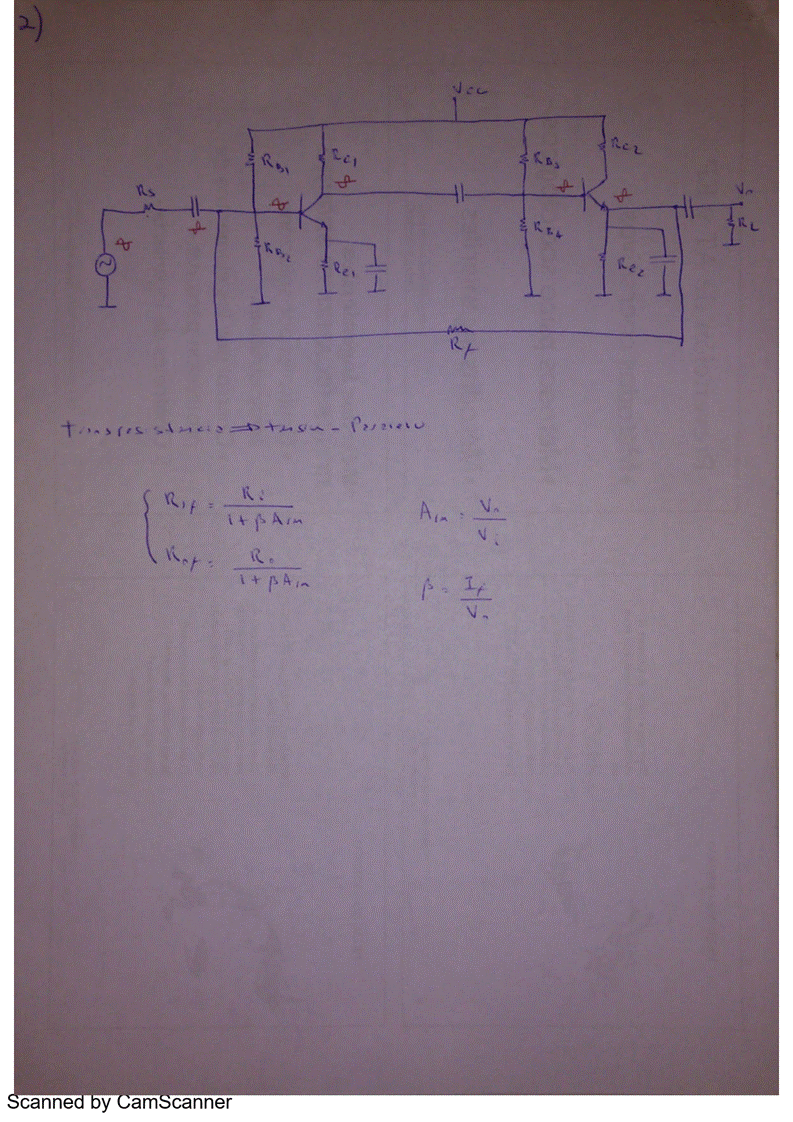 2)
Vcc
RB1 RC1 RB3 RC2
RS Vo
RB2 RE1 RB4 RE2 RL
Rf
Transresistencia ⇒ tensión - Paralelo
Rif = Ri / 1 + β Am
Rof = Ro / 1 + β Am
Am = Vo / Vi
β = If / Vo
Scanned by CamScanner